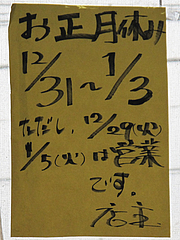 お正月休み
12/31〜1/3
ただし、12/29(火)
1/5(火)は営業
です。
店主